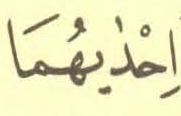 اِحْدٰيهُمَا